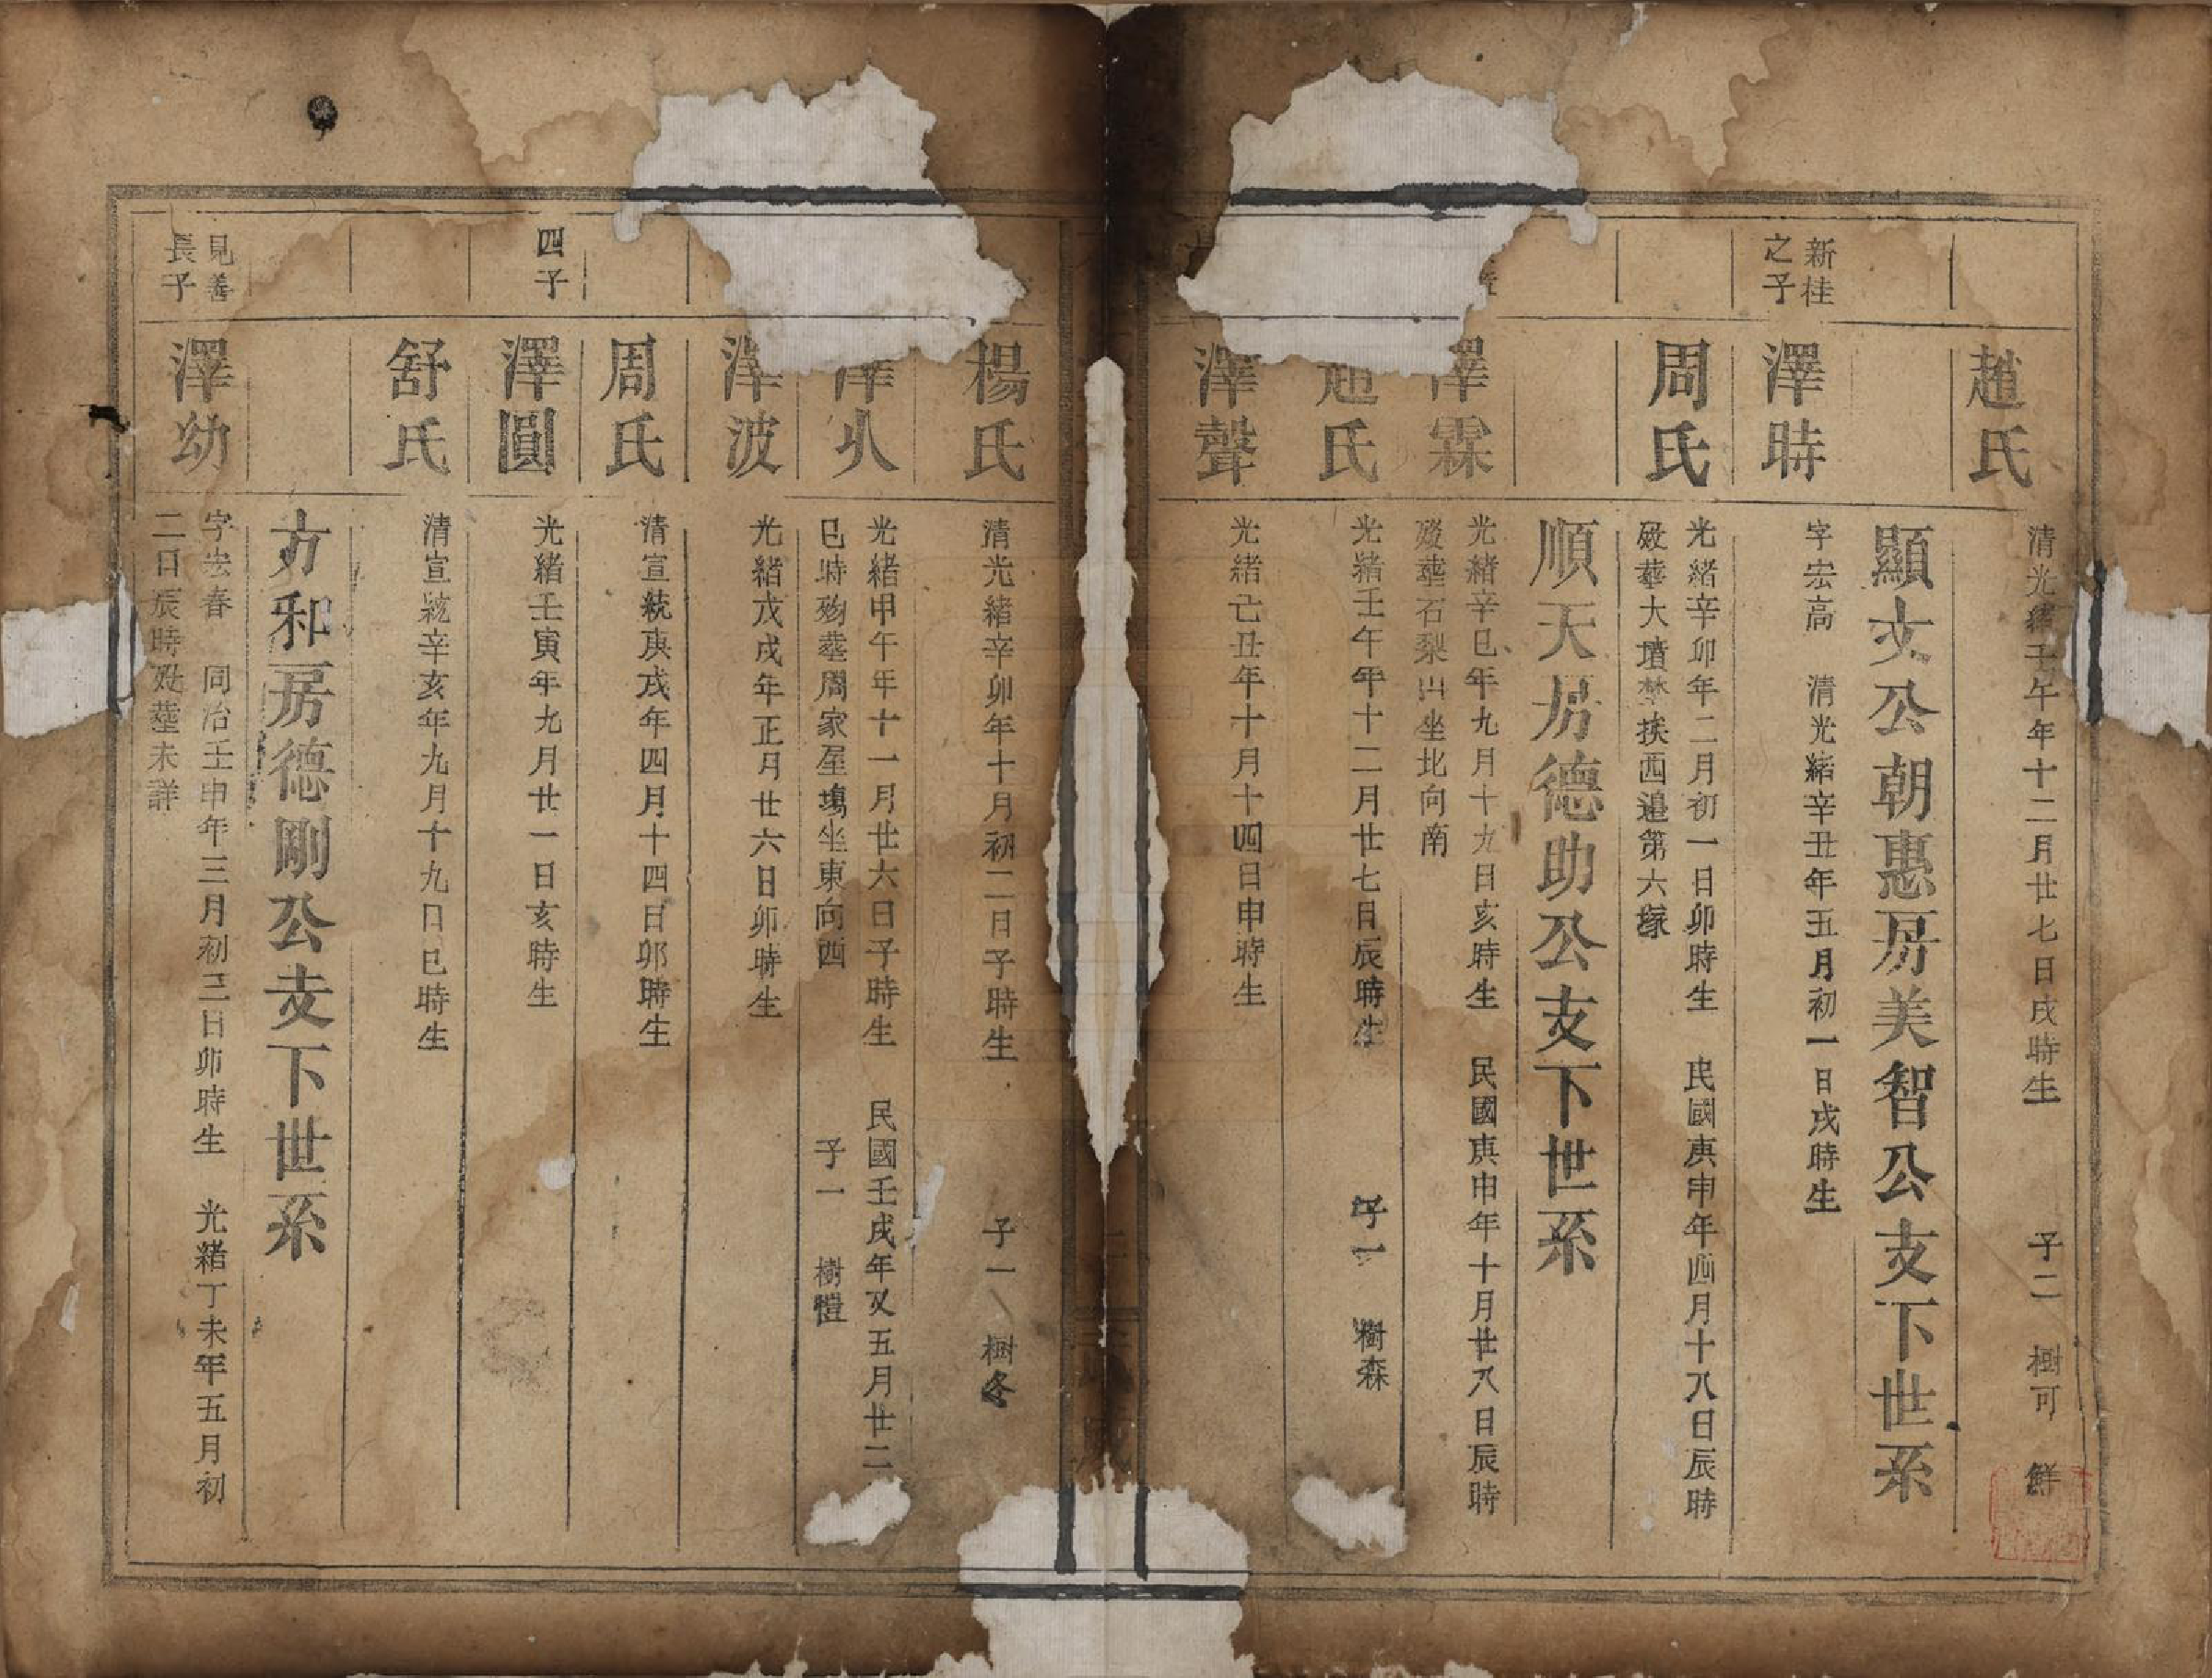 趙氏
清光緒壬午年十二月廿七日戌時生 子二 樹可 鮮
顯文公朝惠房美智公支下世系
新桂之子
澤時
字宏高 清光緒辛丑年五月初一日戌時生
周氏
光緒辛卯年二月初一日卯時生 民國庚申年四月十八日辰時
歿葬大墳林挨西邉第六塚
順天房德助公支下世系
澤霖
光緒辛巳年九月十九日亥時生 民國庚申年十月廿八日辰時
歿葬石梨山坐北向南
趙氏
光緒壬午年十二月廿七日辰時生 子一 樹森
澤聲
光緒丑年十月十四日申時生
楊氏
清光緒辛卯年十月初二日子時生 子一 樹冬
澤
光緒甲午年十一月廿六日子時生 民國壬戌年又五月廿二
巳時歿葬周家屋塲坐東向西 子一 樹愷
澤波
光緒戊戌年正月廿六日卯時生
周氏
清宣統庚戌年四月十四日卯時生
四子
澤圓
光緒壬寅年九月廿一日亥時生
舒氏
清宣統辛亥年九月十九日巳時生
方和房德剛公支下世系
見善長子
澤幼
字宏春 同治壬申年三月初三日卯時生 光緒丁未年五月初
二日辰時歿葬未詳